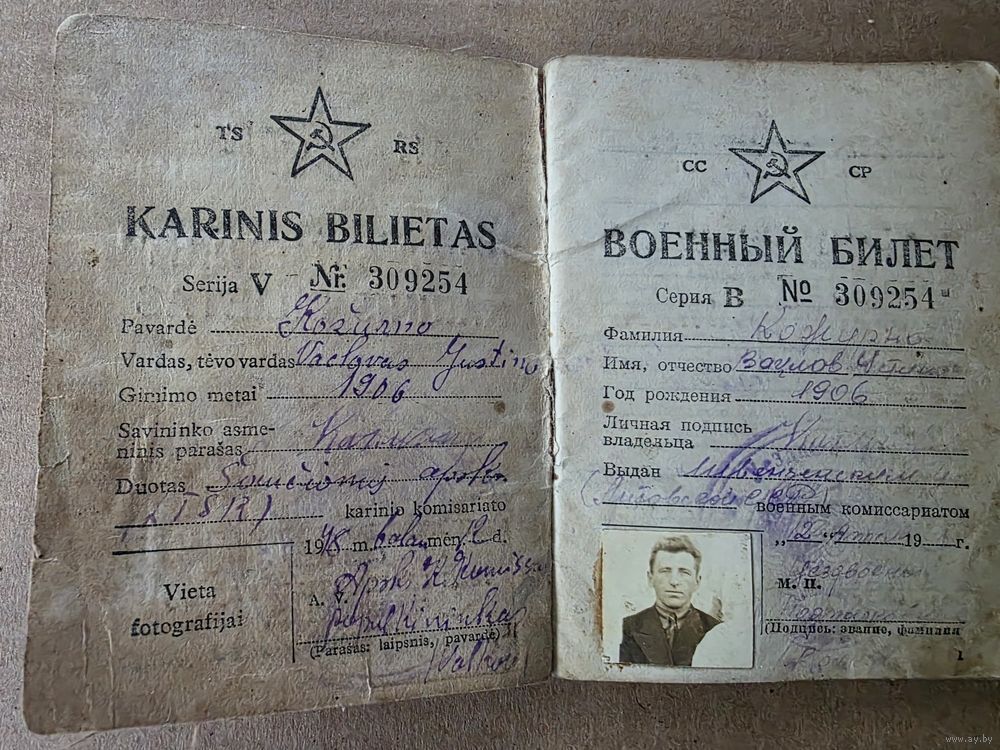 TS RS
KARINIS BILIETAS
Serija V Nr. 309254
Pavardė Kožurno
Vardas, tėvo vardas Vaclovas Justino
Gimimo metai 1906
Savininko asme-
ninis parašas
Duotas Švenčionių apskr.
(TSR) karinio komisariato
1948 m. baland. mėn. 12 d.
Vieta
fotografijai
A. V.
(Parašas: laipsnis, pavardė)
СС СР
ВОЕННЫЙ БИЛЕТ
Серия В № 309254
Фамилия Кожурно
Имя, отчество
Год рождения 1906
Личная подпись
владельца
Выдан
военным комиссариатом
„12“ апреля 19 г.
М. П.
(Подпись: звание, фамилия
1
www.ay.by